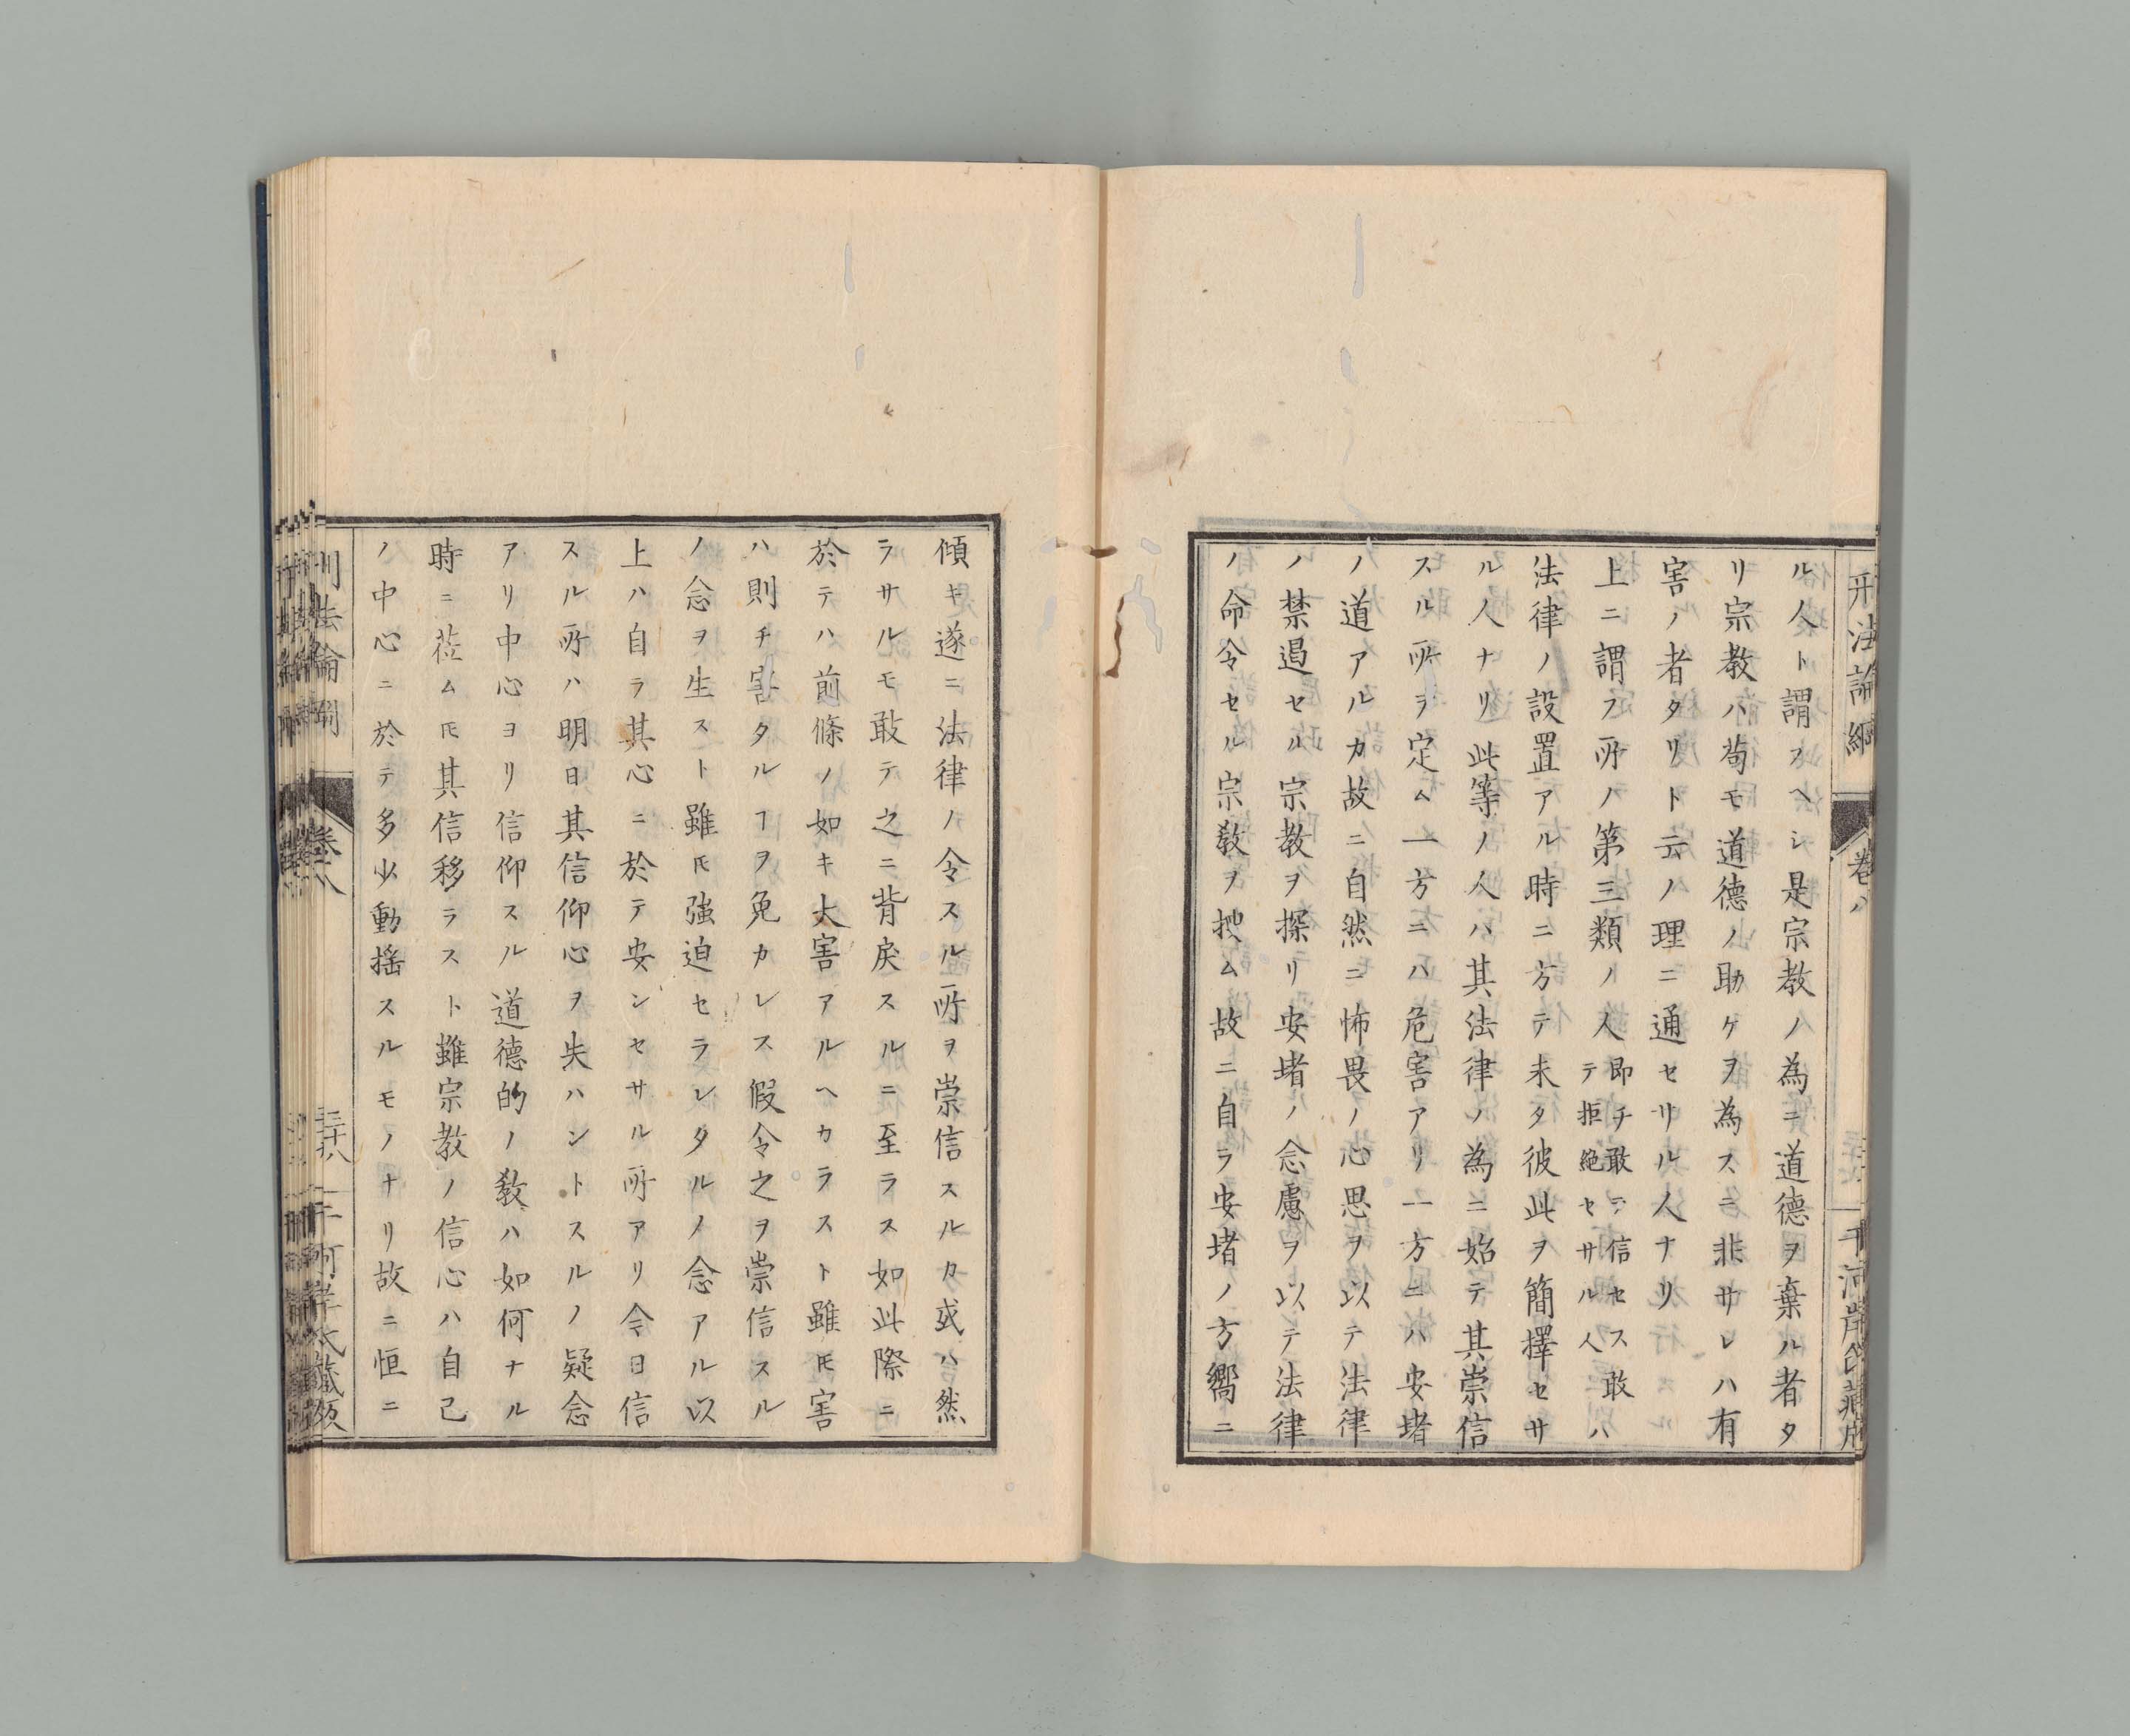 刑法論綱
卷八
ル人ト謂フヘシ是宗教ノ為ニ道德ヲ棄ル者タ
リ宗教ハ苟モ道德ノ助ケヲ為スニ非サレハ有
害ノ者タリト云ノ理ニ通セリル人ナリ
上ニ謂フ所ノ第三類ノ人即チ敢テ信セス敢テ拒絶セサル人ハ
法律ノ設置アル時ニ方テ未タ彼此ヲ簡擇セサ
ル人ナリ此等ノ人ハ其法律ノ為ニ始テ其崇信
スル所ヲ定ム一方ニハ危害アリ一方ニハ安堵
ノ道アルカ故ニ自然ニ怖畏ノ心思ヲ以テ法律
ノ禁遏セル宗教ヲ探リ安堵ノ念慮ヲ以テ法律
ノ命令セル宗敎ヲ搜ム故ニ自ラ安堵ノ方嚮ニ
傾キ遂ニ法律ノ令スル所ヲ崇信スルカ或ハ然
ラサルモ敢テ之ニ背戾スルニ至ラス如此際ニ
於テハ前條ノ如キ大害アルヘカラスト雖𪜈害
ハ則チ害タルヿヲ免カレス假令之ヲ崇信スル
ノ念ヲ生スト雖𪜈強迫セラレタルノ念アル以
上ハ自ラ其心ニ於テ安ンセサル所アリ今日信
スル所ハ明日其信仰心ヲ失ハントスルノ疑念
アリ中心ヨリ信仰スル道德的ノ敎ハ如何ナル
時ニ莅ム𪜈其信移ラスト雖宗教ノ信心ハ自己
ノ中心ニ於テ多少動揺スルモノナリ故ニ恒ニ
卷八
三十八